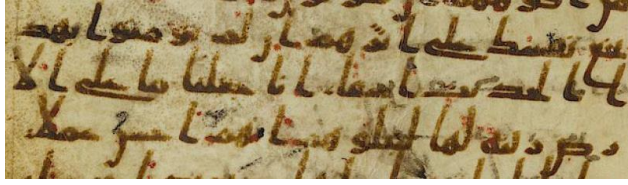 نفسك على اثرهم ان لم يومنوا بهذ
ا الحديث اسفا انا جعلنا ما على الا
رض زينه لها لنبلوهم ايهم احسن عملا